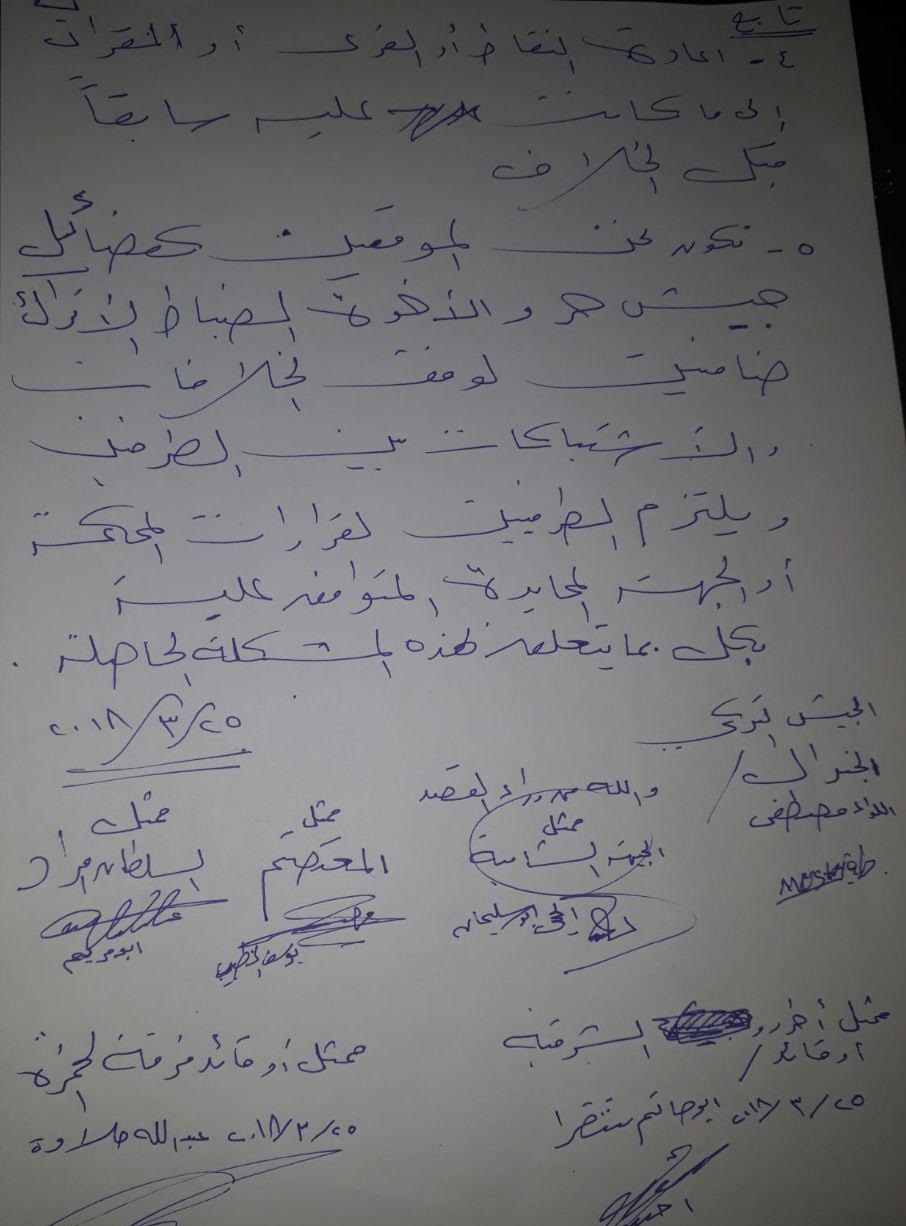 تابع
٤ - اعادة النقاط أو القرى أو المقرات
إلى ما كانت عليه سابقاً
قبل الخلاف
٥ - نكون نحن الموقعين كفصائل
جيش حر والأخوة الضباط الأتراك
ضامنين لوقف الخلافات
والأشتباكات بين الطرفين
ويلتزم الطرفين لقرارات المحكمة
أو الجهة المحايدة المتوافق علية
بكل بما يتعلق لهذه المشكلة الحاصلة .
٢٠١٨/٣/٢٥
الجيش التركي
الجنرال /
اللواء مصطفى
Mostafa
والله من وراء القصد
ممثل
الجبهة الشامية
ابو سليمان
ممثل
المعتصم
يوسف الخطيب
ممثل
السلطان مراد
ابو مريم
ممثل أحرار الشرقية
أو قائد /
٢٠١٨/٣/٢٥ ابو حاتم شقرا
ممثل أو قائد فرقة الحمزة
٢٠١٨/٣/٢٥ عبدالله حلاوة